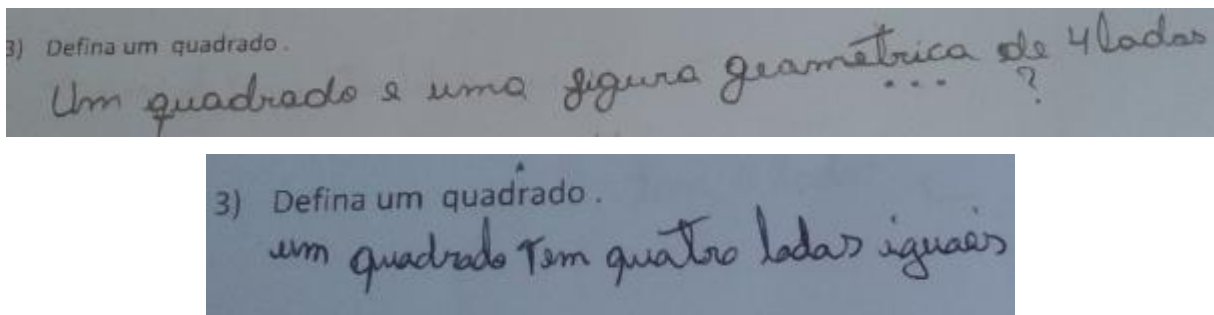 3) Defina um quadrado.
Um quadrado e uma figura geamêtrica de 4 lados
... ?
3) Defina um quadrado.
um quadrado Tem quatro lados iguais